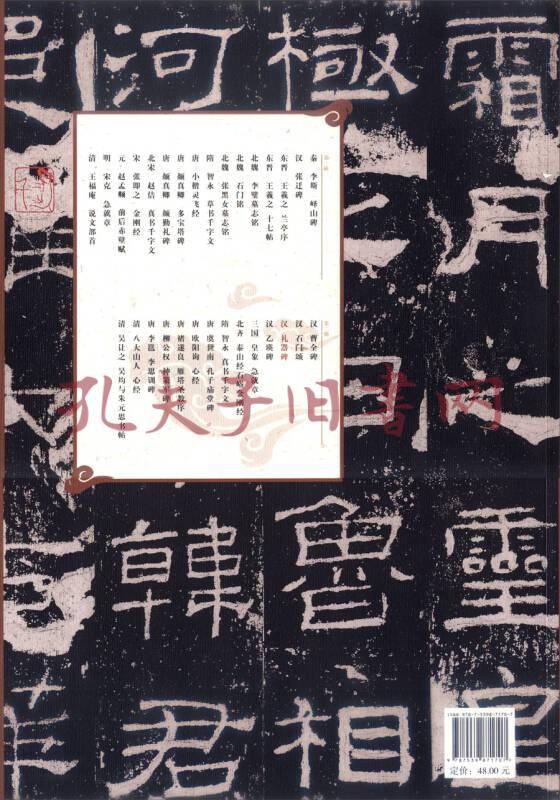 霜月
極
河
第一辑
秦 李斯 峄山碑
汉 张迁碑
东晋 王羲之 兰亭序
东晋 王羲之 十七帖
北魏 李璧墓志铭
北魏 石门铭
北魏 张黑女墓志铭
隋 智永 草书千字文
唐 小楷灵飞经
唐 颜真卿 多宝塔碑
唐 颜真卿 颜勤礼碑
北宋 赵佶 真书千字文
宋 张即之 金刚经
元 赵孟頫 前后赤壁赋
明 宋克 急就章
清 王福庵 说文部首
第二辑
汉 曹全碑
汉 石门颂
汉 礼器碑
汉 乙瑛碑
三国 皇象 急就章
北齐 泰山经石峪金刚经
隋 智永 真书千字文
唐 虞世南 孔子庙堂碑
唐 欧阳询 心经
唐 褚遂良 雁塔圣教序
唐 柳公权 神策军碑
唐 李邕 李思训碑
清 八大山人 心经
清 吴让之 吴均与朱元思书帖
孔夫子旧书网
靈
魯相
韓
君
ISBN 978-7-5398-7170-7
9 787539 871707
定价：48.00 元